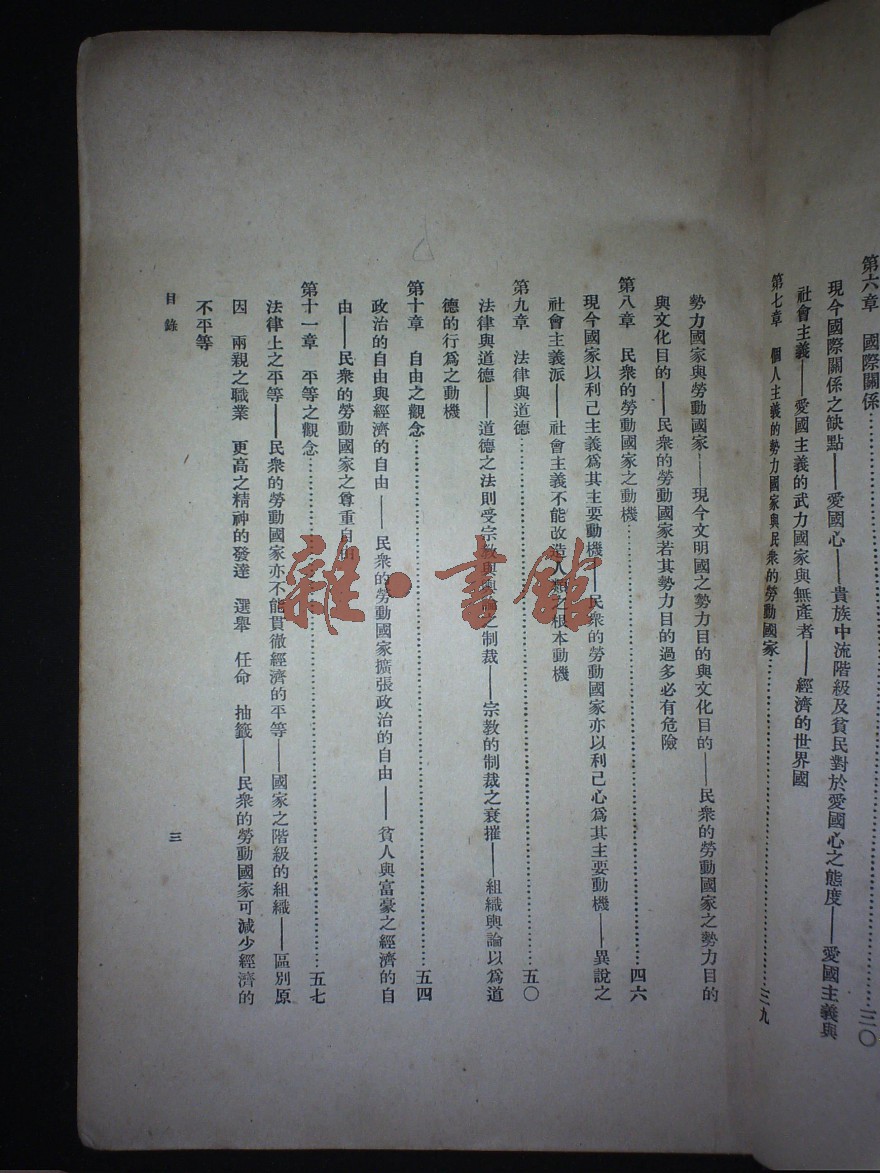 第六章　國際關係……三〇
現今國際關係之缺點——愛國心——貴族中流階級及貧民對於愛國心之態度——愛國主義與
社會主義——愛國主義的武力國家與無產者——經濟的世界國
第七章　個人主義的勢力國家與民衆的勞動國家……三九
勢力國家與勞動國家——現今文明國之勢力目的與文化目的——民衆的勞動國家之勢力目的
與文化目的——民衆的勞動國家若其勢力目的過多必有危險
第八章　民衆的勞動國家之動機……四六
現今國家以利己主義爲其主要動機——民衆的勞動國家亦以利己心爲其主要動機——異說之
社會主義派——社會主義不能改造人類之根本動機
第九章　法律與道德……五〇
法律與道德——道德之法則受宗教與輿論之制裁——宗教的制裁之衰摧——組織輿論以爲道
德的行爲之動機
第十章　自由之觀念……五四
政治的自由與經濟的自由——民衆的勞動國家擴張政治的自由——貧人與富豪之經濟的自
由——民衆的勞動國家之尊重自由
第十一章　平等之觀念……五七
法律上之平等——民衆的勞動國家亦不能貫徹經濟的平等——國家之階級的組織——區別原
因　兩親之職業　更高之精神的發達　選舉　任命　抽籤——民衆的勞動國家可減少經濟的
不平等
目錄
三
雜·書館